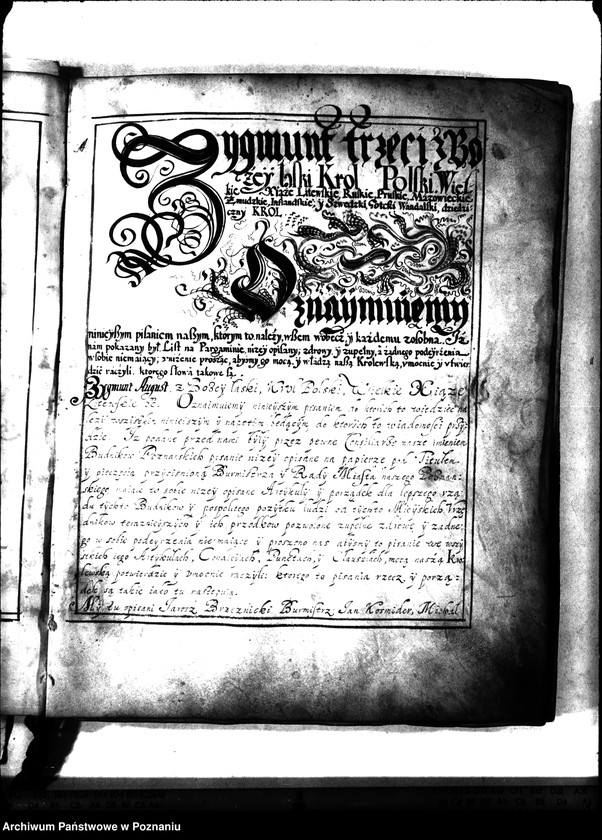 Zygmunt trzeci z Bo
żey łaski Krol Polski. Wiel
kie Xiąże Litewskie, Ruskie, Pruskie, Mazowieckie,
Zmudzkie, Inflandskie, y Szwedzki, Gotski Wandalski, dziedzi
czny KROL.
Oznaymuiemy
ninieyßym pisaniem naßym, ktorym to należy, wßem wobecz, y każdemu zosobna. Iż
nam pokazany był List na Pargaminie, niżey opisany, zdrowy, y zupełny, a żadnego podeyrzenia
wsobie niemaiący, vniżenie prosząc, abyśmy go mocą, y władzą naßą Krolewską, vmocnic y vtwier
dzić raczyli. ktorego słowa takowe są.
Zygmunt August, z Bożey łaski, Krol Polski, Wielkie Xiąże
Litewskie &c. Oznaimuiemy ninieyszym pisaniem, do ktorich to wiedziec na
lezi wszistkim ninieiszym y napotim będącym do ktorich to wiadomosci przy
dzie. Iz podane przed nami były przez pewne Consiliarze nasze imieniem
Budnikow Poznanskich pisanie niżey opisane na papierze pod Titułem
y pieczęcią przycisnioną Burmistrza y Rady Miasta naszego Poznan
skiego maiąc to sobie niżey opisane Artykuły y porządek dla lepszego rzą
du tychto Budnikow y pospolitego pozytku ludzi od tychto Mieyskich Vrzę
dnikow teraznieyszych y ich przodkow pozwolone zupełne zdrowe y zadne
go w sobie podeyrzenia niemaiące y proszono nas abysmy to pisanie we wszy
stkich iego Artykułach, Condiciach, Punktach, y Clauzulach, mocą naszą Kro
lewską potwierdzic y vmocnic raczyli: ktorego to pisania rzecz, y porzą
dek są takie iako tu nastepuią.
My tu opisani Jarosz Brzeznicki Burmistrz Jan Kosmider, Michal
Archiwum Państwowe w Poznaniu